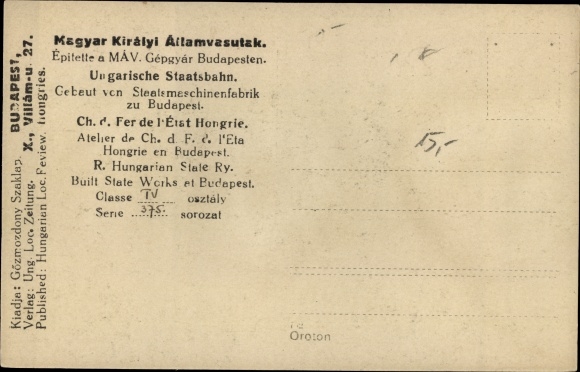 Magyar Királyi Államvasutak.
Építette a MÁV. Gépgyár Budapesten.
Ungarische Staatsbahn.
Gebaut von Staatsmaschinenfabrik
zu Budapest.
Ch. d. Fer de l'État Hongrie.
Atelier de Ch. d. F. d. l'Eta
Hongrie en Budapest.
R. Hungarian State Ry.
Built State Works at Budapest.
Classe IV osztály
Serie 375. sorozat
Kiadja: Gőzmozdony Szaklap. BUDAPEST,
Verlag: Ung. Loc. Zeitung. X., Villám-u. 27.
Published: Hungarian Loc. Feview. Hongries.
15,-
Oroton